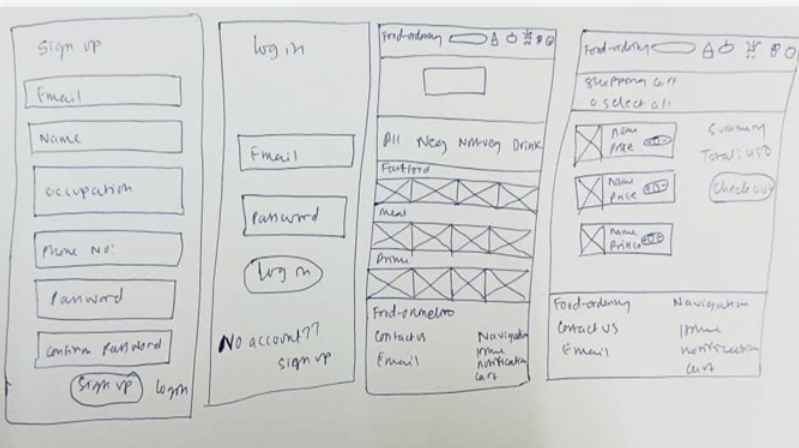 Sign up
Email
Name
occupation
Phone No:
Password
Confirm Password
Sign up Login
Log in
Email
Password
Log in
No account??
sign up
Food-ordering
All Veg Non-veg Drink
Fastfood
meal
Drink
Contact us
Email
Navigation
Home
notification
Cart
Food-ordering
Shopping Cart
o select all
name
Price
name
Price
name
Prince
Summary
Total: USD
Check out
Food-ordering
Contact US
Email
Navigation
Home
notification
Cart